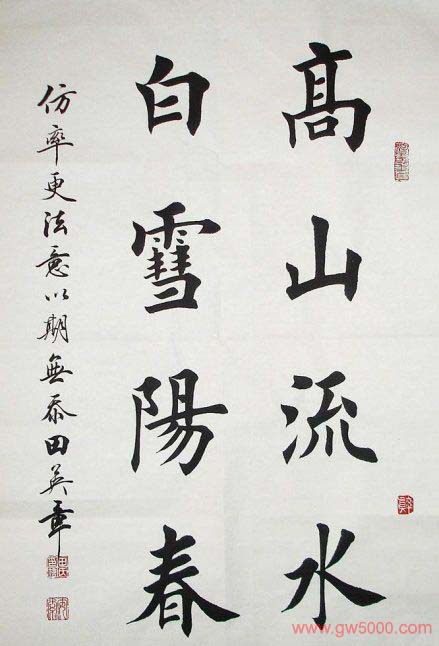 髙山流水
白雪陽春
仿率更法意以期無忝田英章
www.gw5000.com